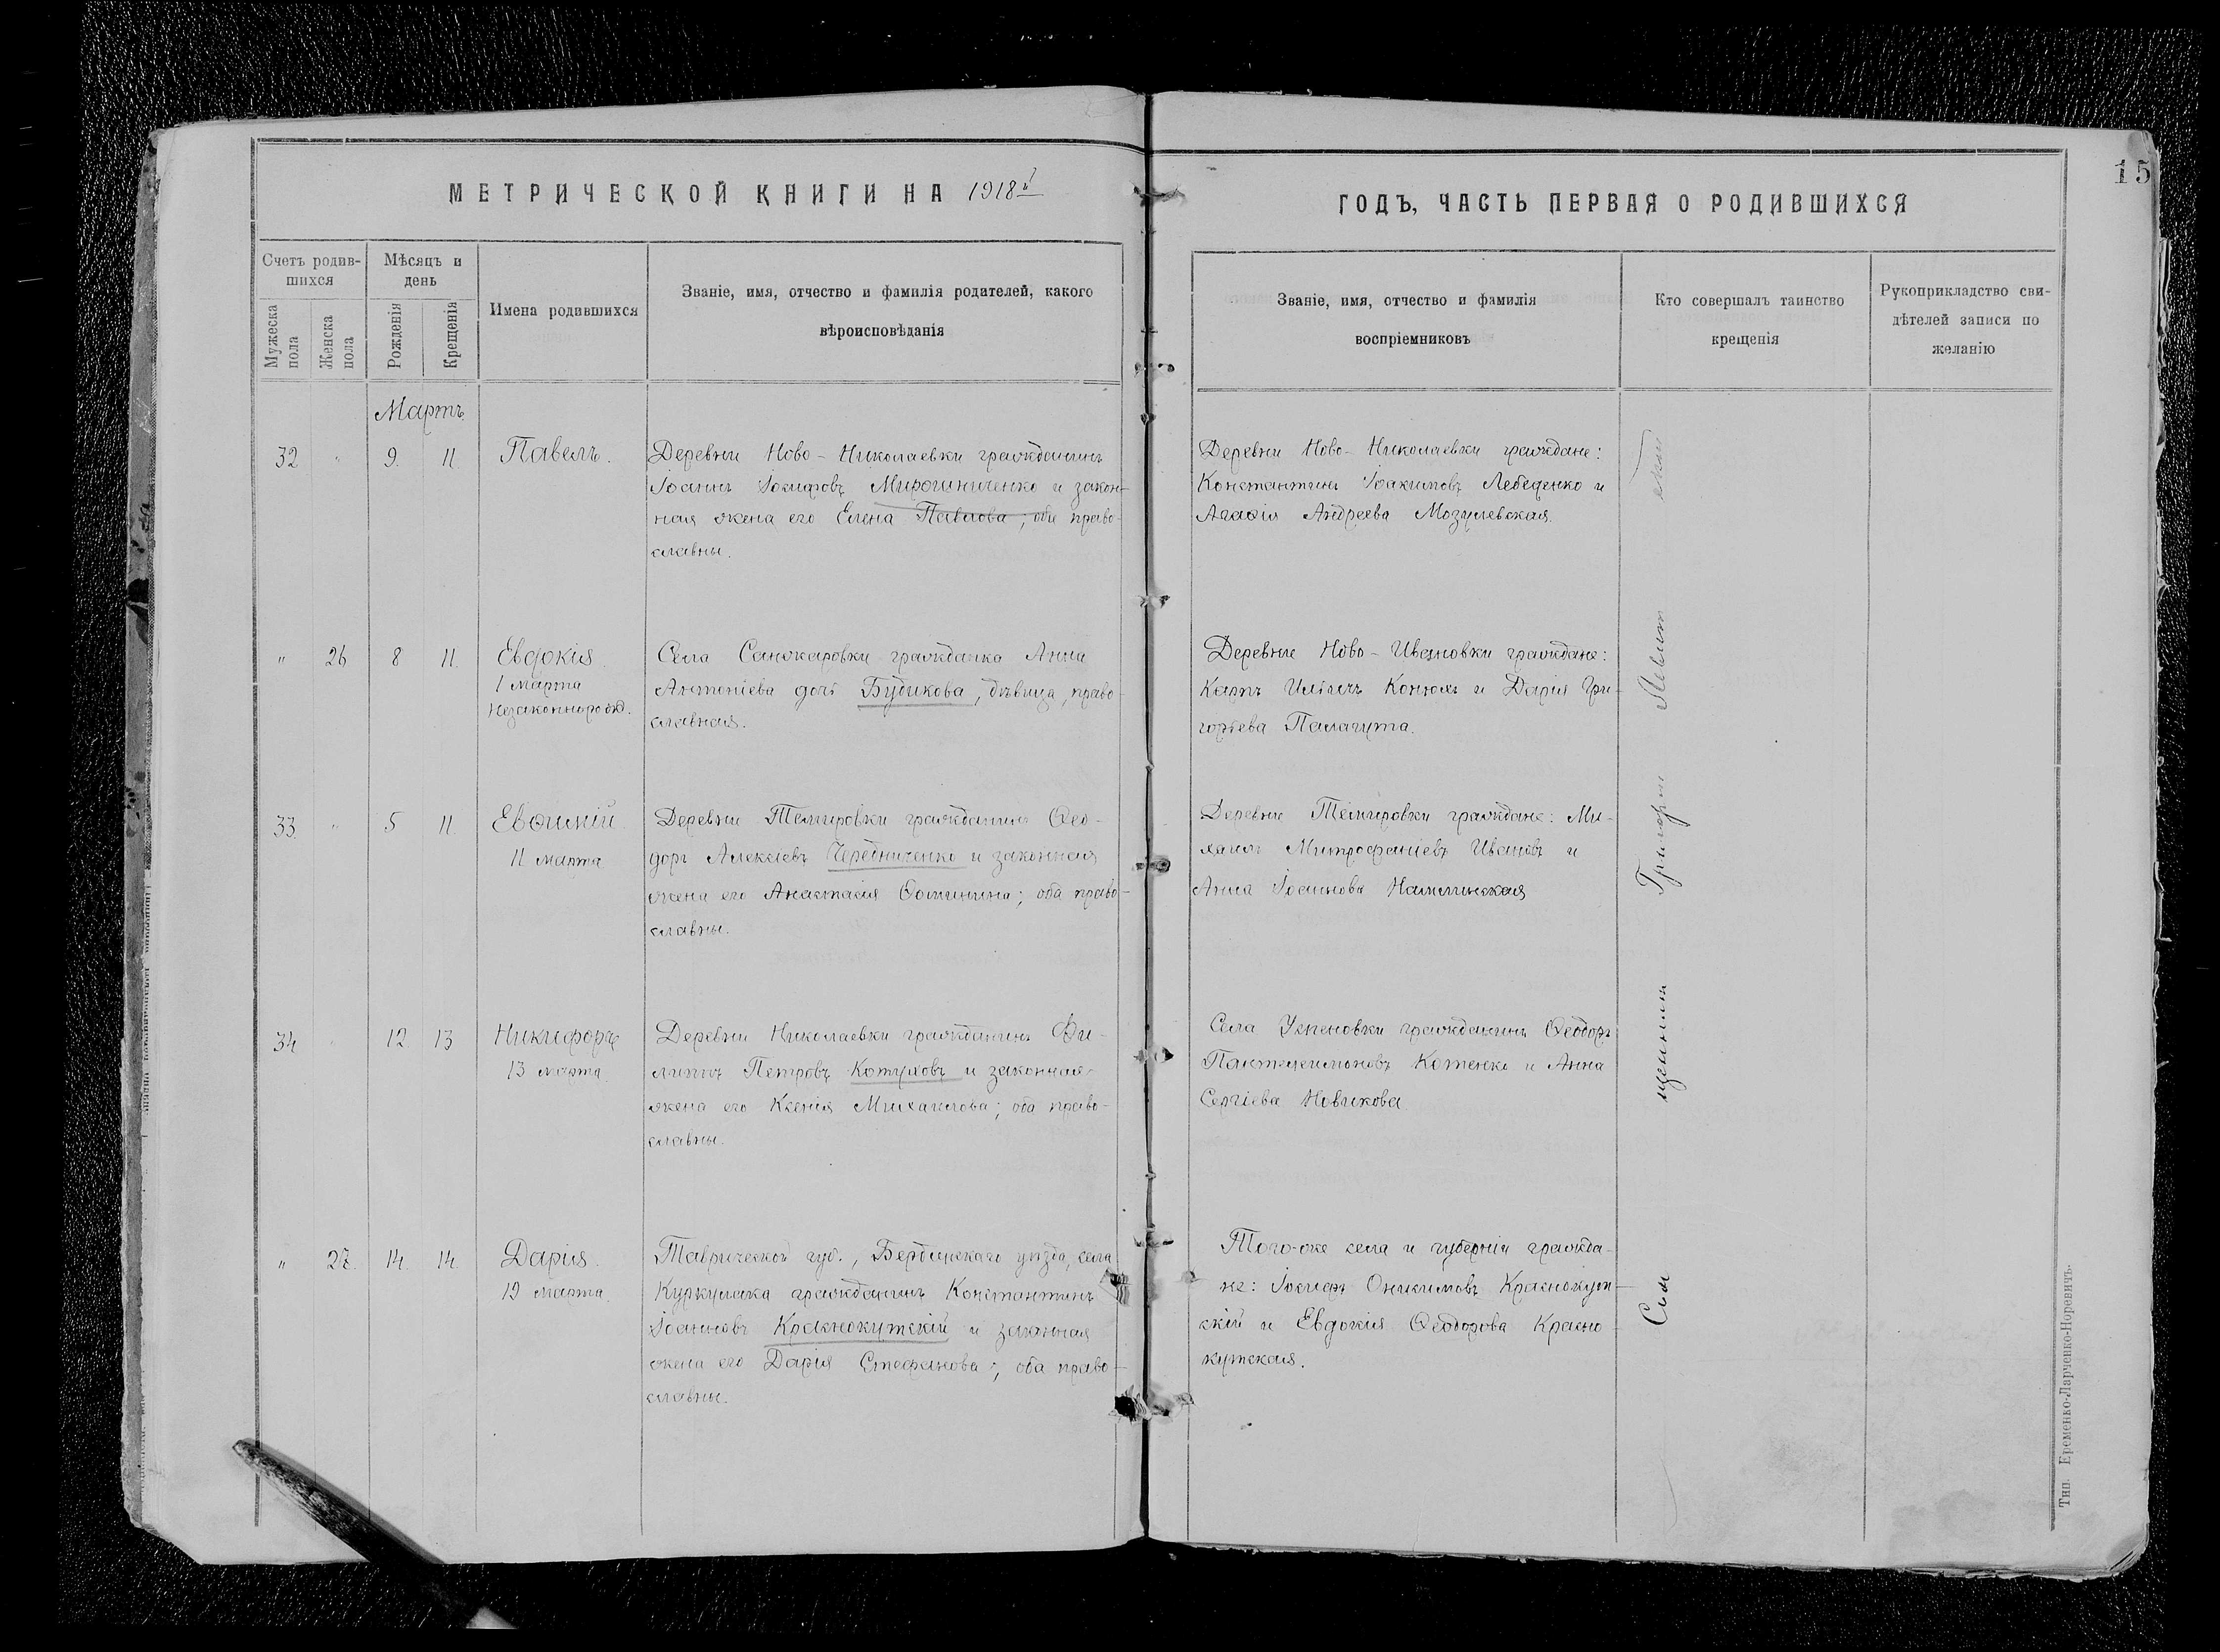 15
МЕТРИЧЕСКОЙ КНИГИ НА 1918й
ГОДЪ, ЧАСТЬ ПЕРВАЯ О РОДИВШИХСЯ
Счетъ родив-
шихся
Мужеска
пола
Женска
пола
Мѣсяцъ и
день
Рожденія
Крещенія
Имена родившихся
Званіе, имя, отчество и фамилія родителей, какого
вѣроисповѣданія
Званіе, имя, отчество и фамилія
воспріемниковъ
Кто совершалъ таинство
крещенія
Рукоприкладство сви-
дѣтелей записи по
желанію
Мартъ
32 " 9. 11. Павелъ.
Деревни Ново-Николаевки гражданинъ
Іоаннъ Іосифовъ Мирошниченко и закон-
ная жена его Елена Павлова; оба право-
славны.
Деревни Ново-Николаевки граждане:
Константинъ Іоакимовъ Лебеденко и
Агафія Андреева Мозулевская.
" 26 8 11. Евдокія.
1 Марта
Незаконнорожд.
Села Санжаровки гражданка Анна
Антоніева дочь Будикова, дѣвица, право-
славная.
Деревни Ново-Ивановки граждане:
Карпъ Ильичъ Конюхъ и Дарія Гри-
горьева Палагута.
33 " 5 11. Евѳимій
11 марта
Деревни Темировки гражданинъ Ѳео-
доръ Алексіевъ Чередниченко и законная
жена его Анастасія Ѳоминина; оба право-
славны.
Деревни Темировки граждане: Ми-
хаилъ Митрофаніевъ Ивановъ и
Анна Іоаннова
34 " 12. 13 Никифоръ
13 марта.
Деревни Николаевки гражданинъ Фи-
липпъ Петровъ Котуховъ и законная
жена его Ксенія Михаилова; оба право-
славны.
Села Успеновки гражданинъ Ѳеодоръ
Пантелеимоновъ Котенко и Анна
Сергіева Новикова
" 27. 14. 14. Дарія.
19 марта.
Таврической губ., Бердянскаго уѣзда, села
Куркулака гражданинъ Константинъ
Іоанновъ Краснокутскій и законная
жена его Дарія Стефанова; оба право-
славны.
Того-же села и губерніи гражда-
не: Іосифъ Онисимовъ Краснокут-
скій и Евдокія Ѳеодорова Красно-
кутская.
Свя щенникъ Григорій
Тип. Еременко-Ларченко-Норевичъ.